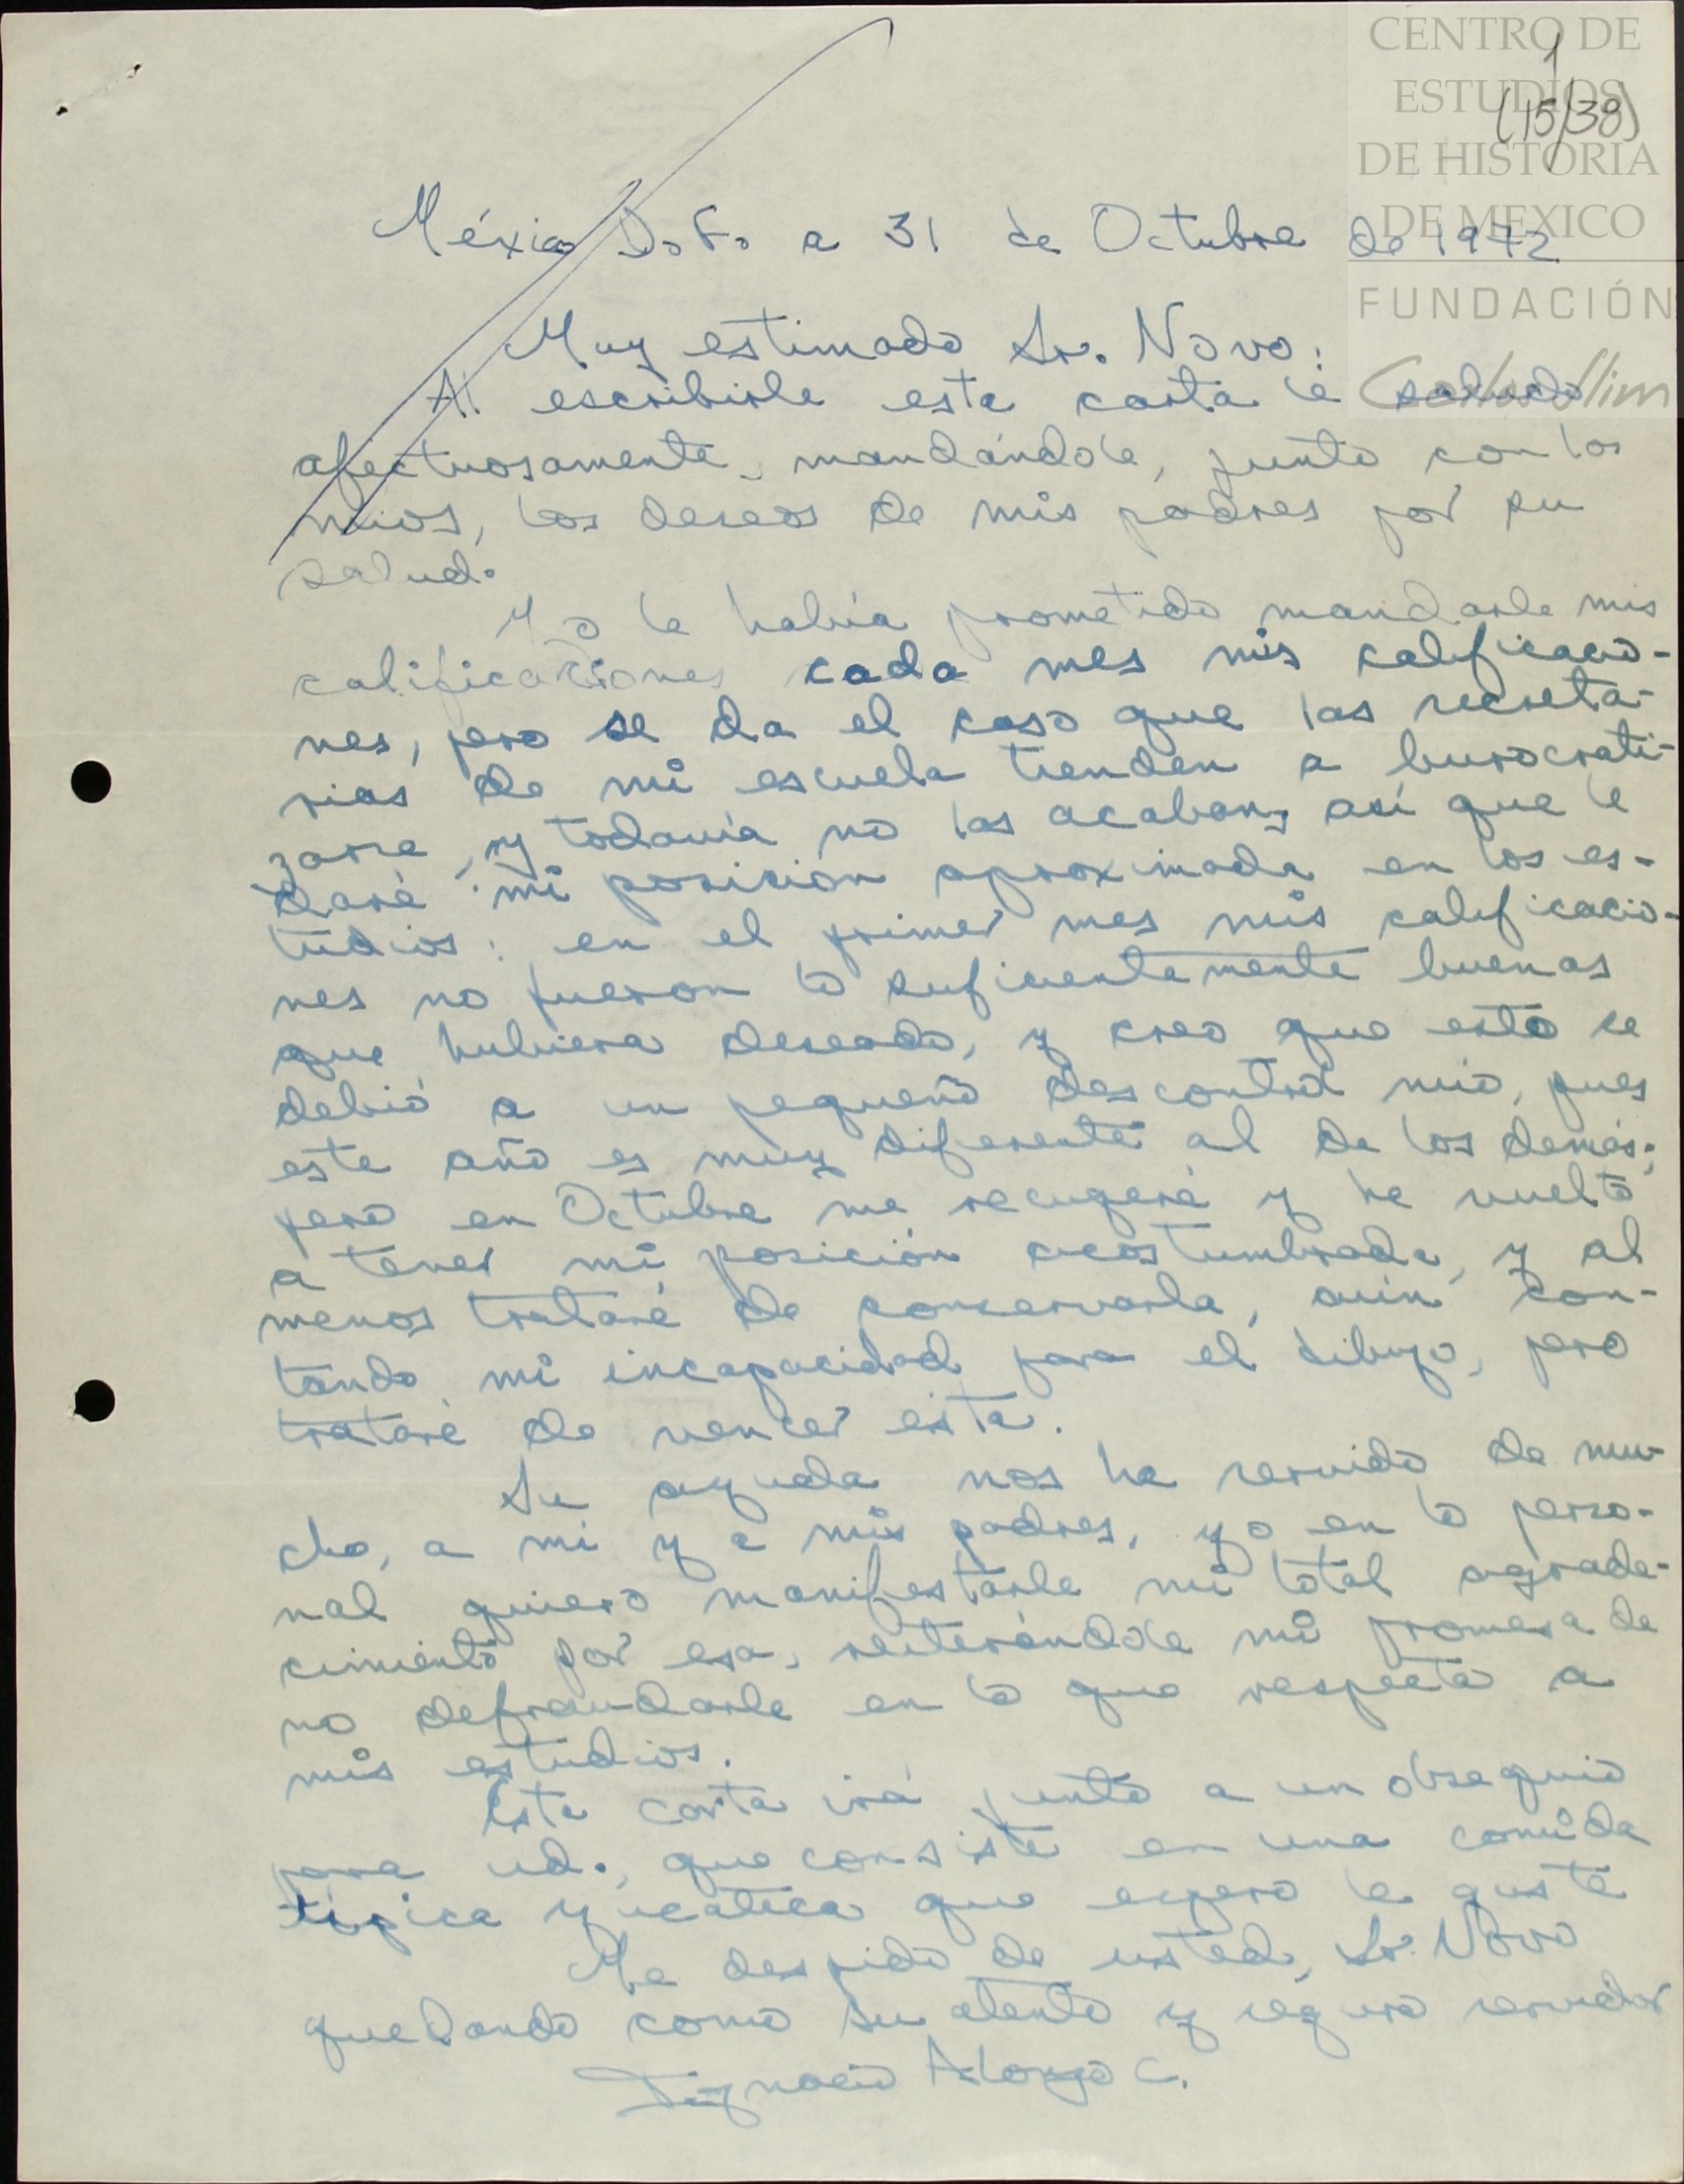 CENTRO DE
ESTUDIOS
DE HISTORIA
DE MEXICO
FUNDACIÓN
Carlos Slim
1
(15/38)
México D.F. a 31 de Octubre de 1972
Muy estimado Sr. Novo:
Al escribirle esta carta le saludo
afectuosamente, mandándole, junto con los
mios, los deseos de mis padres por su
salud.
Yo le había prometido mandarle mis
calificaciones cada mes mis calificacio-
nes, pero se da el caso que las secreta-
rias de mi escuela tienden a burocrati-
zarse, y todavía no las acaban, así que le
daré mi posición aproximada en los es-
tudios: en el primer mes mis calificacio-
nes no fueron lo suficientemente buenas
que hubiera deseado, y creo que esto se
debió a un pequeño descontrol mio, pues
este año es muy diferente al de los demás;
pero en Octubre me recuperé y he vuelto
a tener mi posición acostumbrada, y al
menos trataré de conservarla, aún con-
tando mi incapacidad para el dibujo, pero
trataré de vencer ésta.
Su ayuda nos ha servido de mu-
cho, a mi y a mis padres, yo en lo perso-
nal quiero manifestarle mi total agrade-
cimiento por esa, reiterándole mi promesa de
no defraudarle en lo que respecta a
mis estudios.
Esta carta irá junto a un obsequio
para ud., que consiste en una comida
típica yucateca que espero le guste
Me despido de usted, Sr. Novo
quedando como su atento y seguro servidor
Ignacio Alonzo C.